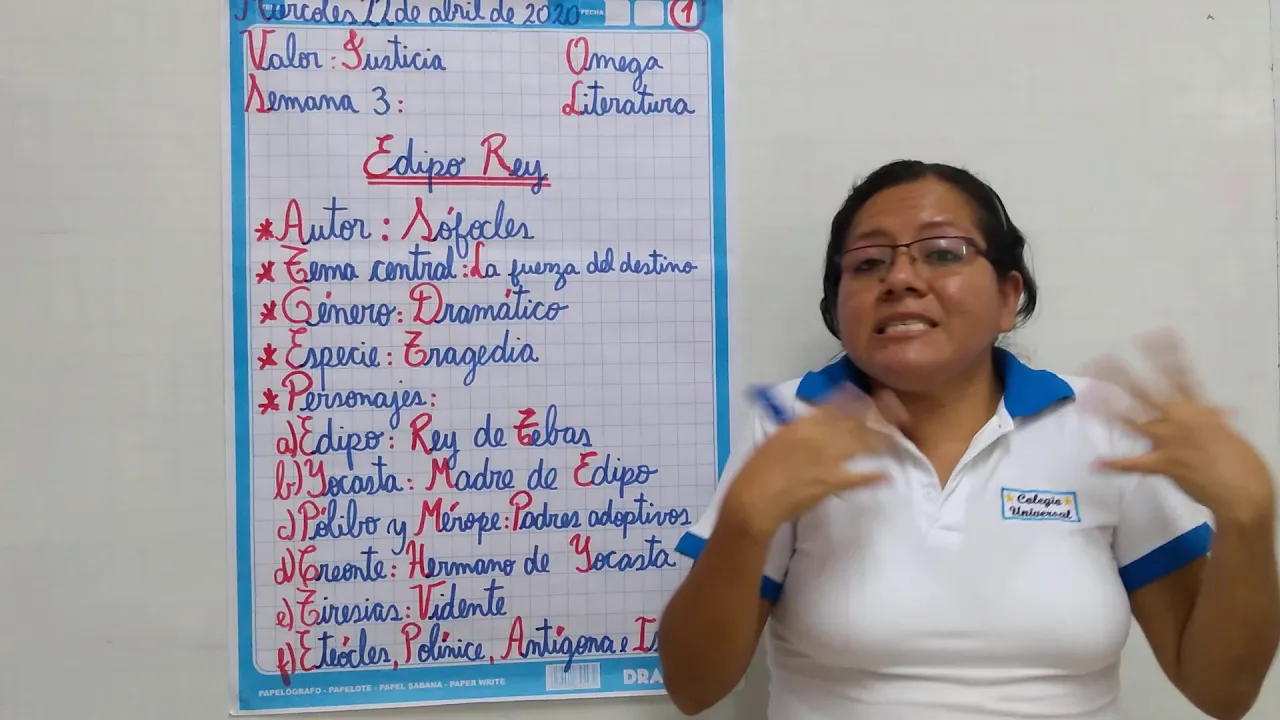 Miércoles 22 de abril de 2020 FECHA 1
Valor: Justicia Omega
Semana 3: Literatura
Edipo Rey
* Autor: Sófocles
* Tema central: La fuerza del destino
* Género: Dramático
* Especie: Tragedia
* Personajes:
a) Edipo: Rey de Tebas
b) Yocasta: Madre de Edipo
c) Pólibo y Mérope: Padres adoptivos
d) Creonte: Hermano de Yocasta
e) Tiresias: Vidente
f) Eteócles, Polínice, Antígona e Is
PAPELÓGRAFO - PAPELOTE - PAPEL SABANA - PAPER WRITE DRA
Colegio
Universal